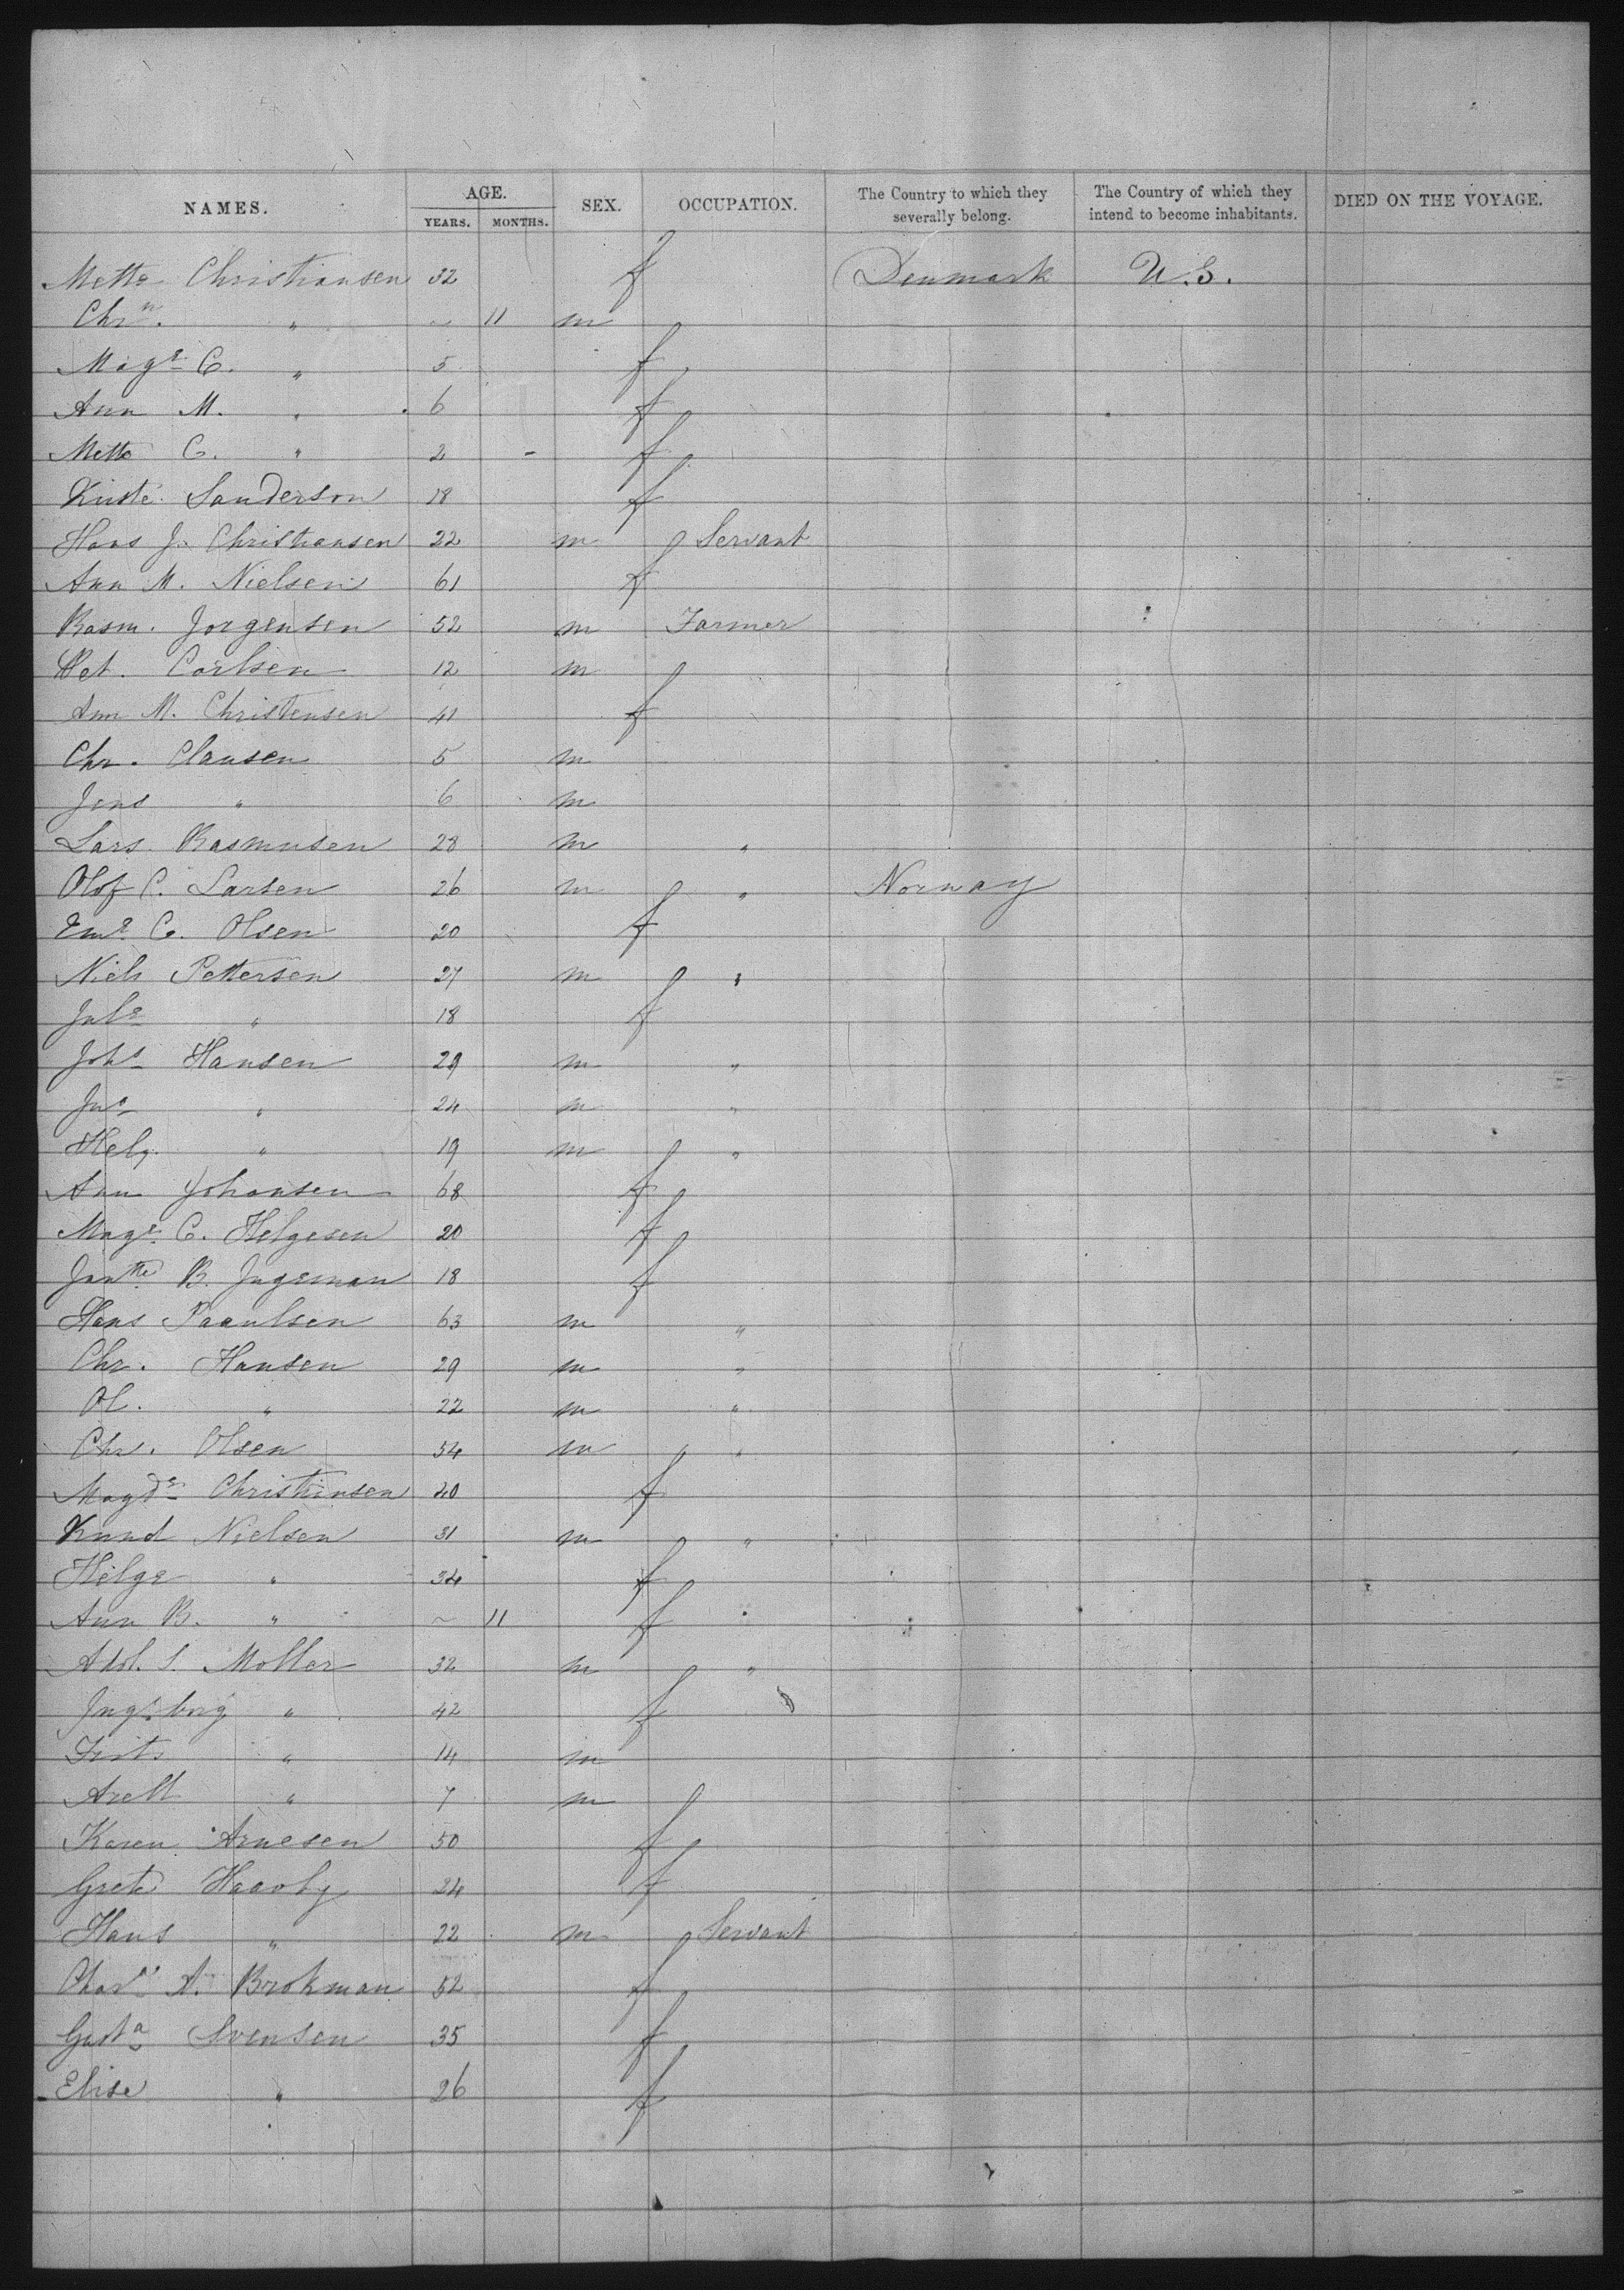 NAMES. AGE. SEX. OCCUPATION. The Country to which they severally belong. The Country of which they intend to become inhabitants. DIED ON THE VOYAGE.
YEARS. MONTHS.
Mette Christiansen 32 f Denmark U.S.
Chrn. " ~ 11 m
Mage C. " 5 f
Ann M. " 6 f
Mette C. " 2 - f
Kirste. Sanderson 18 f
Hans J. Christiansen 22 m Servant
Ann M. Nielsen 61 f
Rasm. Jorgensen 52 m Farmer
Pet. Carlsen 12 m
Ann M. Christensen 41 f
Chr. Clausen 5 m
Jens " 6 m
Lars Rasmusen 28 m "
Olof C. Larsen 26 m " Norway
Eme C. Olsen 20 f
Niels Pettersen 27 m "
Jule " 18 f
Johs Hansen 29 m "
" 24 m "
Helg. " 19 m "
Ann Johansen 68 f
Mage C. Helgesen 20 f
Jantte B. Ingeman 18 f
Hans Paaulsen 63 m "
Chr. Hansen 29 m "
Ol. " 22 m "
Chr. Olsen 54 m "
Magde Christiansen 20 f
Knud Nielsen 31 m "
Helge " 34 f
Ann B. " ~ 11 f
Adol. S. Moller 32 m "
Ingeborg " 42 f
" 14 m
" 7 m
Karen Arnesen 50 f
Grete 24 f
Hans " 22 m Servant
A. Brokman 52 f
Gusta Svensen 35 f
Elise " 26 f